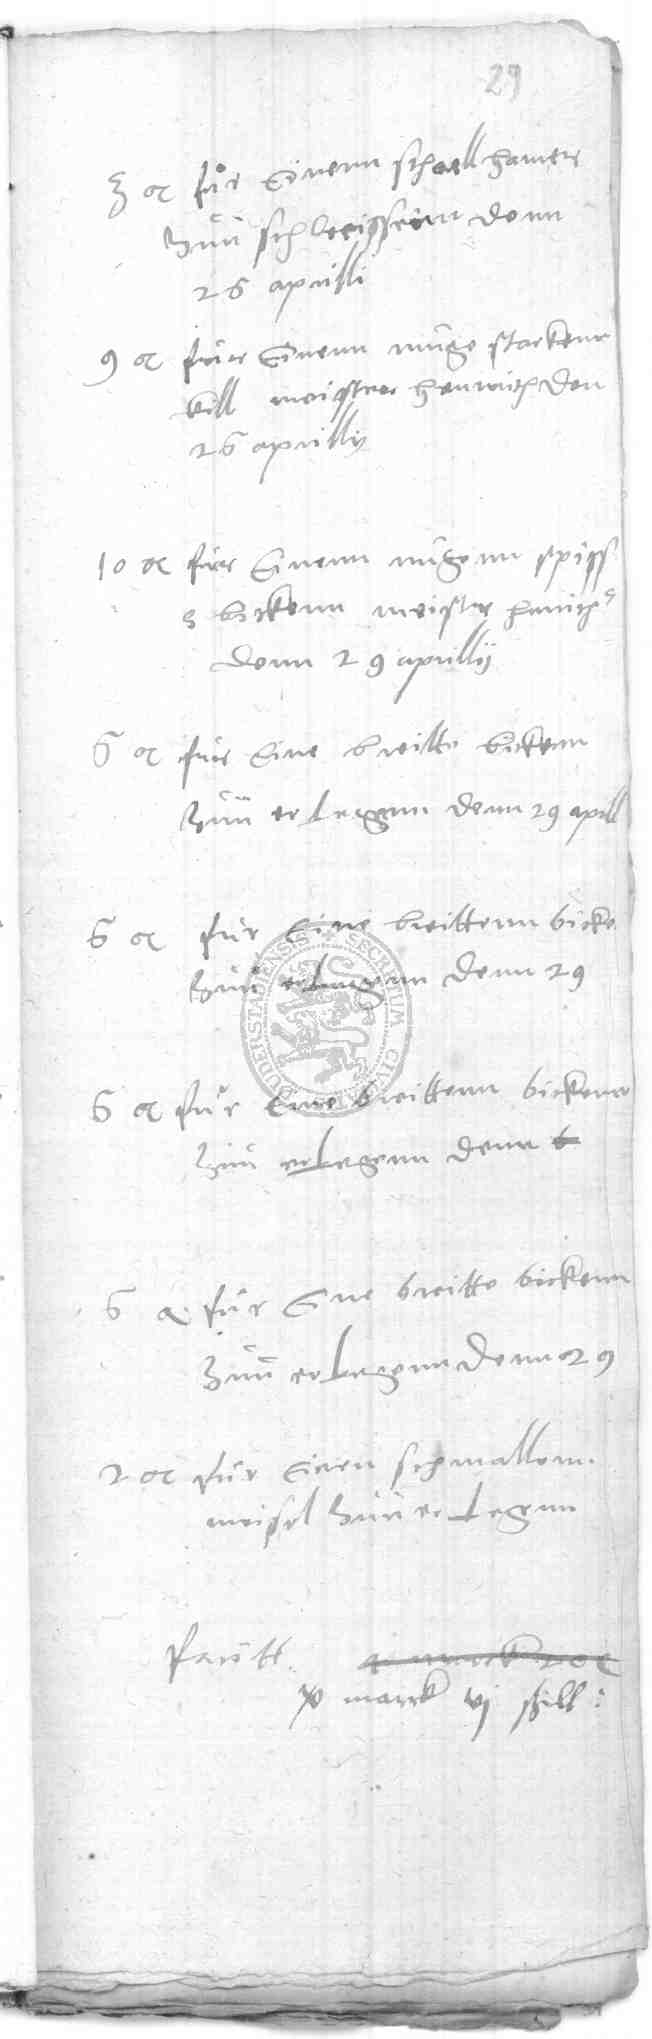 29
3 ß für Einenn schnellhamer
zuu schleeissenn denn
26 aprilli
9 ß fürr Einenn nüge starkenn
kill meister henrich den
26 aprillij
10 ß fürr Einenn nügenn spiss
bickenn meister henrichs
denn 29 aprillij
6 ß für Eine breitte bickenn
zuu erLegenn denn 29 aprill
6 ß für Eine breittenn bicke
zuu erLegenn denn 29
6 ß für Eine breittenn bickenn
zuu erLegenn denn
6 ß für Eine breitte bickenn
zuu erLegenn denn 29
2 ß für Einen schmallenn
meisel zuu erLegenn
facitt
marck vj schill:
SECRETUM CIVITATIS DUDERSTADIENSIS